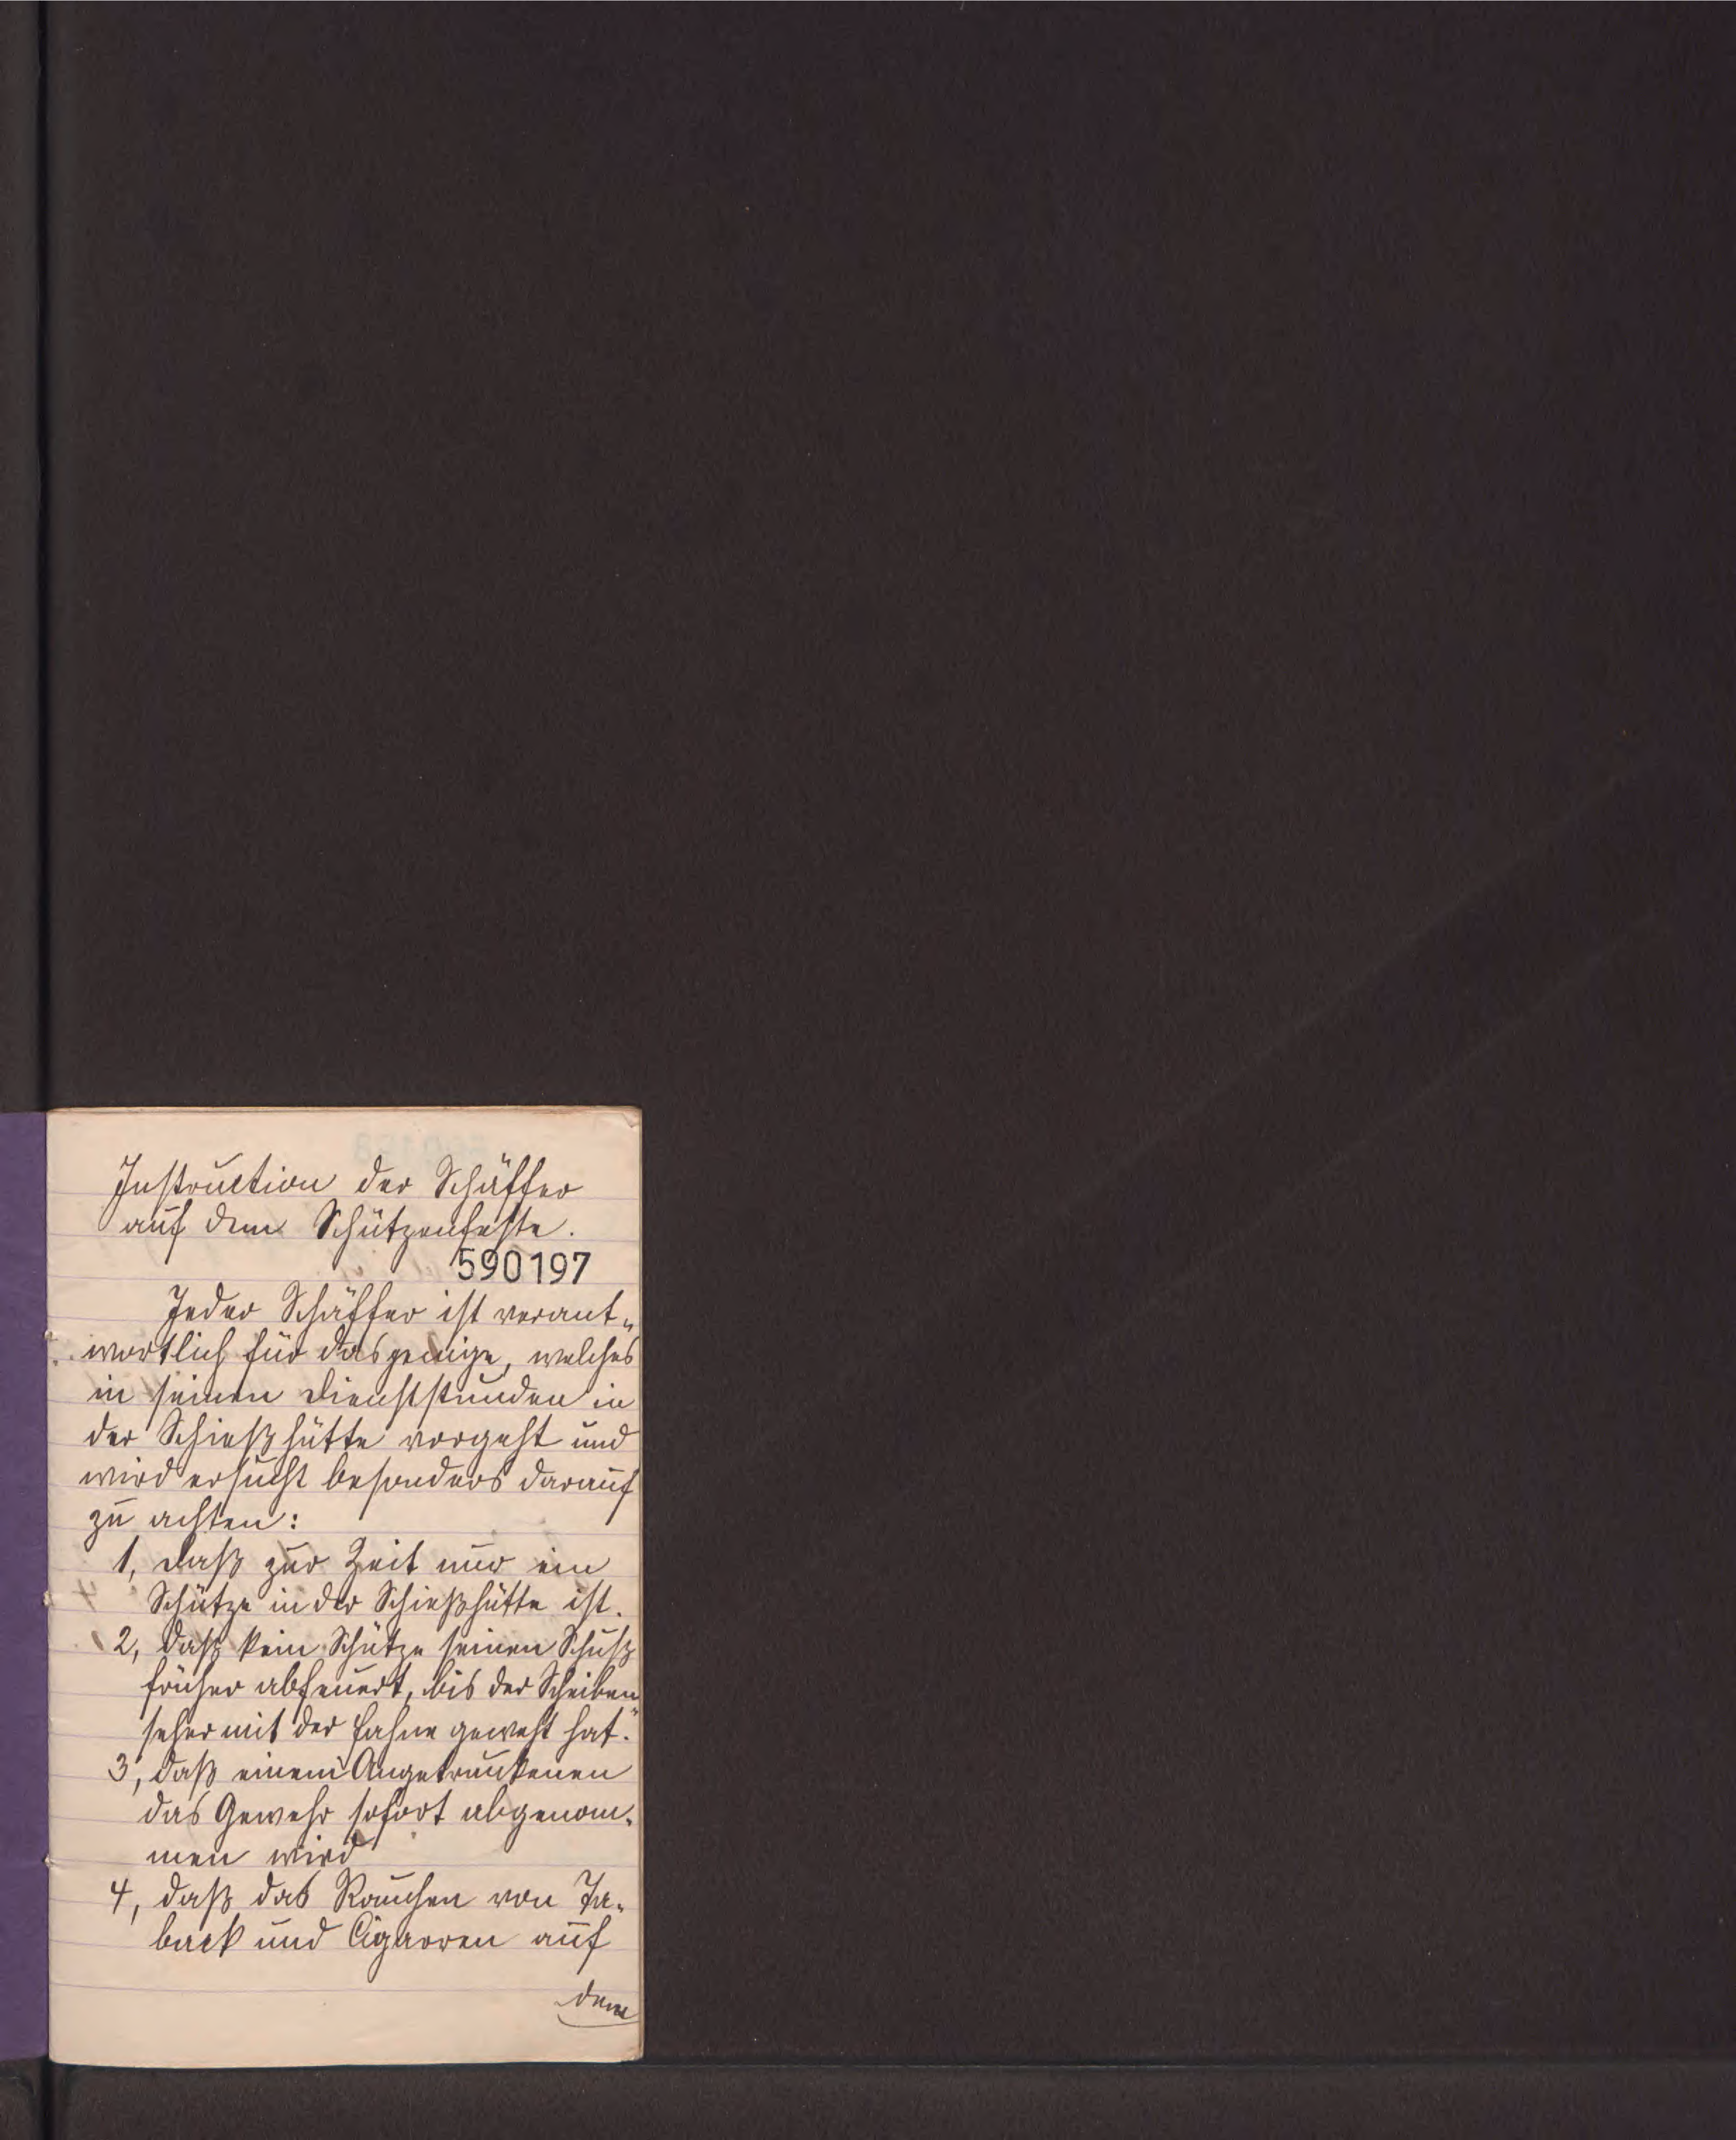 Instruction der Schäffer
auf dem Schützenfeste.
590197
Jeder Schäffer ist verant-
wortlich für dasjenige, welches
in seinen Dienststunden in
der Schießhütte vorgeht und
wird ersucht besonders darauf
zu achten:
1, daß zur Zeit nur ein
Schütze in der Schießhütte ist.
2, daß kein Schütze seinen Schuß
früher abfeuert, bis der Scheiben-
seher mit der Fahne geweht hat.
3, daß einem Angetrunkenen
das Gewehr sofort abgenom-
men wird
4, daß das Rauchen von Ta-
back und Cigarren auf
dem